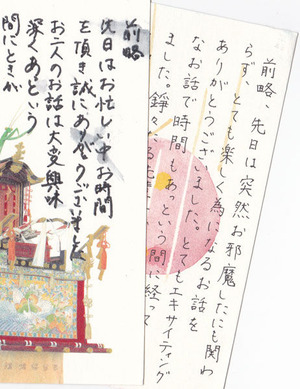 前略、先日は突然お邪魔したにも関わ
らず、とても楽しく為になるお話を
ありがとうございました。とてもエキサイティング
なお話で時間もあっという間に経って
ました。錚々たる
前略
先日はお忙しい中お時間
を頂き誠にありがとうございました
お二人のお話は大変興味
深くあっという
間にときが